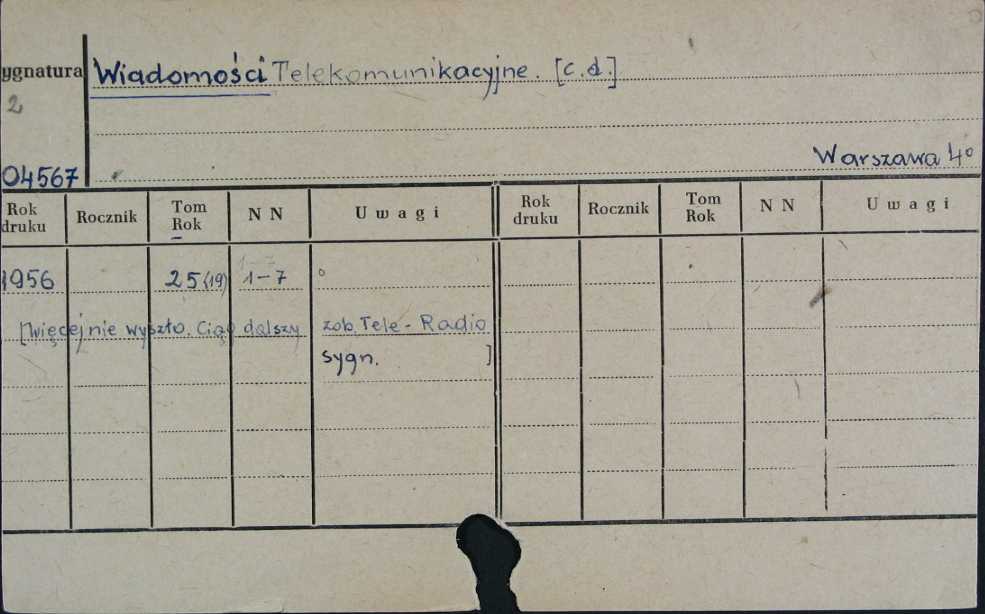 ygnatura Wiadomości Telekomunikacyjne. [c.d.]
2
Warszawa 4°
04567
Rok druku Rocznik Tom Rok NN Uwagi Rok druku Rocznik Tom Rok NN Uwagi
1-7
1956 25(19) 1-7
[więcej nie wyszło. Ciąg dalszy zob. Tele-Radio
sygn. ]